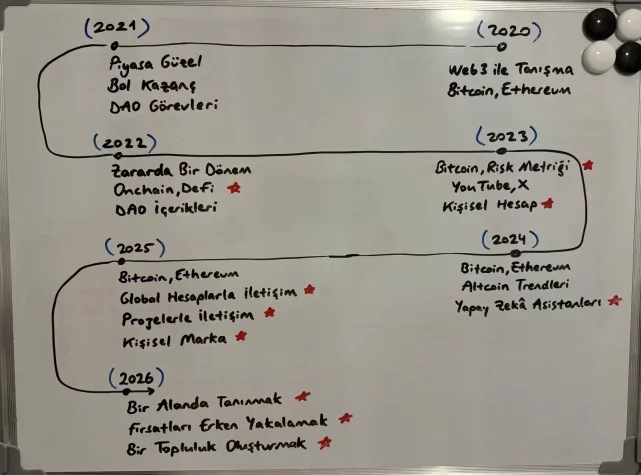 (2020)
Web3 ile Tanışma
Bitcoin, Ethereum
(2021)
Piyasa Güzel
Bol Kazanç
DAO Görevleri
(2022)
Zararda Bir Dönem
Onchain, DeFi
DAO İçerikleri
(2023)
Bitcoin, Risk Metriği
YouTube, X
Kişisel Hesap
(2024)
Bitcoin, Ethereum
Altcoin Trendleri
Yapay Zekâ Asistanları
(2025)
Bitcoin, Ethereum
Global Hesaplarla İletişim
Projelerle İletişim
Kişisel Marka
(2026)
Bir Alanda Tanınmak
Fırsatları Erken Yakalamak
Bir Topluluk Oluşturmak